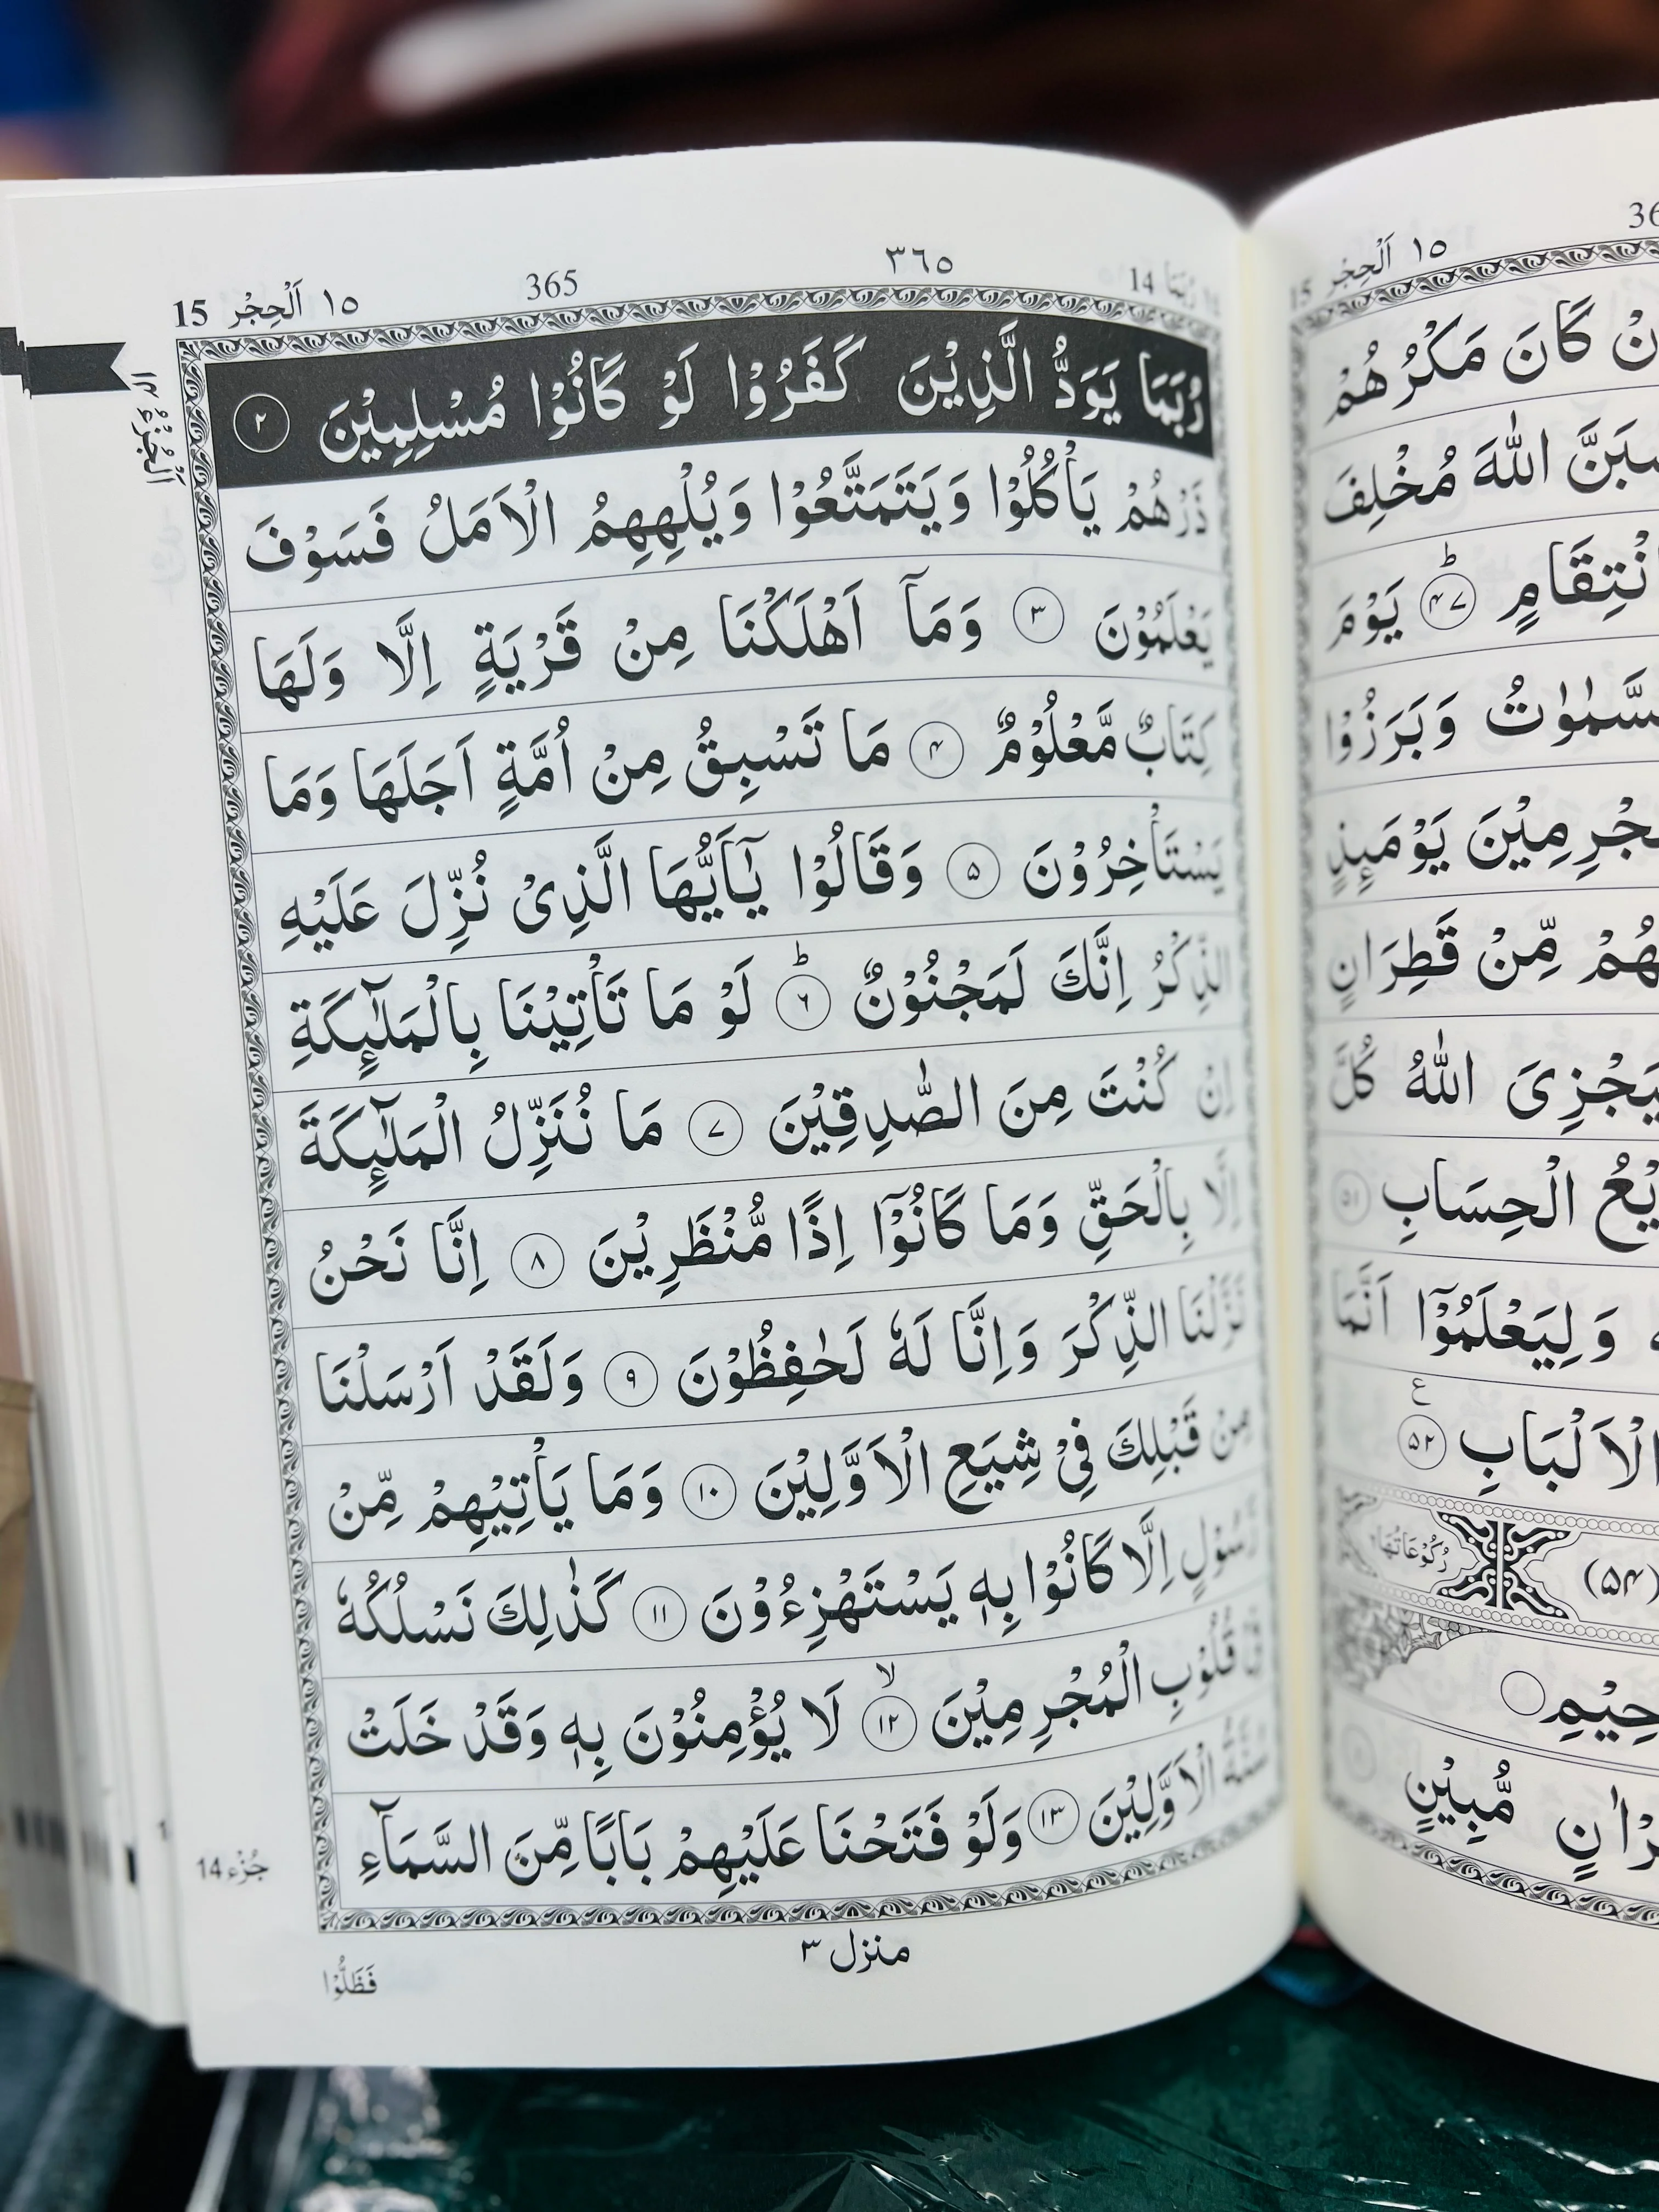 ١٥ اَلْحِجْر 15
365
٣٦٥
رُبَمَا 14
رُبَمَا يَوَدُّ الَّذِيْنَ كَفَرُوْا لَوْ كَانُوْا مُسْلِمِيْنَ ٢
ذَرْهُمْ يَاْكُلُوْا وَيَتَمَتَّعُوْا وَيُلْهِهِمُ الْاَمَلُ فَسَوْفَ
يَعْلَمُوْنَ ٣ وَمَاۤ اَهْلَكْنَا مِنْ قَرْيَةٍ اِلَّا وَلَهَا
كِتَابٌ مَّعْلُوْمٌ ۴ مَا تَسْبِقُ مِنْ اُمَّةٍ اَجَلَهَا وَمَا
يَسْتَاْخِرُوْنَ ۵ وَقَالُوْا يٰۤاَيُّهَا الَّذِىْ نُزِّلَ عَلَيْهِ
الذِّكْرُ اِنَّكَ لَمَجْنُوْنٌ ؕ ۶ لَوْ مَا تَاْتِيْنَا بِالْمَلٰٓئِكَةِ
اِنْ كُنْتَ مِنَ الصّٰدِقِيْنَ ۷ مَا نُنَزِّلُ الْمَلٰٓئِكَةَ
اِلَّا بِالْحَقِّ وَمَا كَانُوْۤا اِذًا مُّنْظَرِيْنَ ۸ اِنَّا نَحْنُ
نَزَّلْنَا الذِّكْرَ وَاِنَّا لَهٗ لَحٰفِظُوْنَ ۹ وَلَقَدْ اَرْسَلْنَا
مِنْ قَبْلِكَ فِىْ شِيَعِ الْاَوَّلِيْنَ ۱۰ وَمَا يَاْتِيْهِمْ مِّنْ
رَّسُوْلٍ اِلَّا كَانُوْا بِهٖ يَسْتَهْزِءُوْنَ ۱۱ كَذٰلِكَ نَسْلُكُهٗ
فِىْ قُلُوْبِ الْمُجْرِمِيْنَ ۙ ۱۲ لَا يُؤْمِنُوْنَ بِهٖ وَقَدْ خَلَتْ
سُنَّةُ الْاَوَّلِيْنَ ۱۳ وَلَوْ فَتَحْنَا عَلَيْهِمْ بَابًا مِّنَ السَّمَآءِ
منزل ۳
فَظَلُّوْا
اَلْجُزْءُ ۱۴
جُزْء 14
١٥ اَلْحِجْر 15
كَانَ مَكْرُهُمْ
اللّٰهَ مُخْلِفَ
انْتِقَامٍ ؕ ۴۷ يَوْمَ
وَبَرَزُوْا
يَوْمَئِذٍ
مِّنْ قَطِرَانٍ
اللّٰهُ كُلَّ
الْحِسَابِ ۵۱
وَلِيَعْلَمُوْۤا اَنَّمَا
الْاَلْبَابِ ۵۲ ع
(۵۴) رُكُوْعَاتُهَا
مُّبِيْنٍ